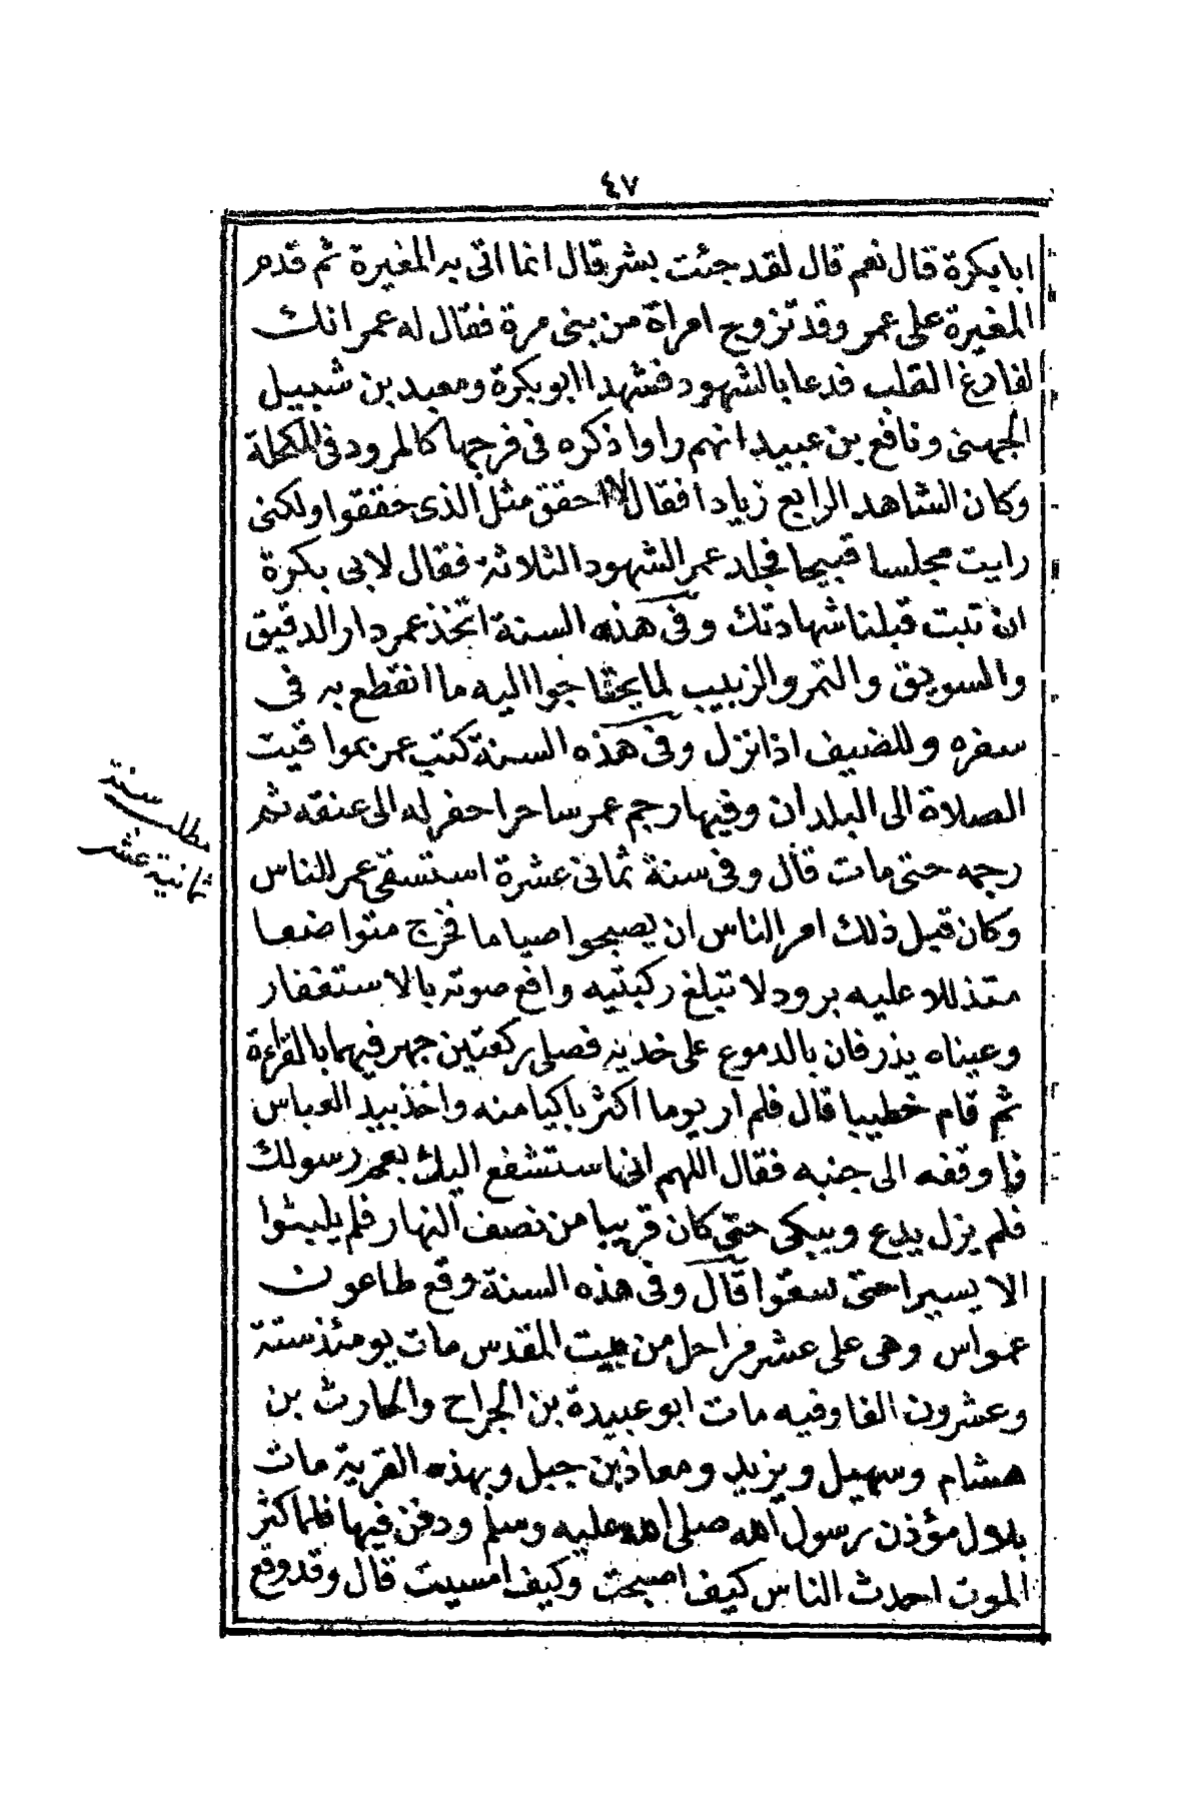 ٤٧
ابابكرة قال نعم قال لقد جئت بشر قال انما اتى به المغيرة ثم قدم
المغيرة على عمر وقد تزوج امراة من بنى مرة فقال له عمر انك
لفارغ القلب فدعا بالشهود فشهد ابو بكرة ومعبد بن شبيل
الجهنى ونافع بن عبيد انهم راوا ذكره فى فرجها كالمرود فى المكحلة
وكان الشاهد الرابع زيادا فقال لا احقق مثل الذى حققوا ولكنى
رايت مجلسا قبيحا فجلد عمر الشهود الثلاثة فقال لابى بكرة
ان تبت قبلنا شهادتك وفى هذه السنة اتخذ عمر دار الدقيق
والسويق والتمر والزبيب لما يحتاجوا اليه ما انقطع به فى
سفره وللضيف اذا نزل وفى هذه السنة كتب عمر بمواقيت
الصلاة الى البلدان وفيها رجم عمر ساحرا حفر له الى عنقه ثم
رجمه حتى مات قال وفى سنة ثمانى عشرة استسقى عمر للناس
وكان قبل ذلك امر الناس ان يصبحوا صياما فخرج متواضعا
متذللا عليه برود لا تبلغ ركبتيه وافع صوته بالاستغفار
وعيناه يذرفان بالدموع على خديه فصلى ركعتين جهر فيهما بالقراءة
ثم قام خطيبا قال فلم ار يوما اكثر باكيا منه واخذ بيد العباس
فاوقفه الى جنبه فقال اللهم انا نستشفع اليك بعم رسولك
فلم يزل يدع ويبكى حتى كان قريبا من نصف النهار فلم يلبثوا
الا يسيرا حتى سقوا قال وفى هذه السنة وقع طاعون
عمواس وهى على عشر مراحل من بيت المقدس مات يومئذ ستة
وعشرون الفا وفيه مات ابو عبيدة بن الجراح والحارث بن
هشام وسهيل ويزيد ومعاذ بن جبل وبهذه القرية مات
بلال مؤذن رسول الله صلى الله عليه وسلم ودفن فيها فلما كثر
الموت احدث الناس كيف اصبحت وكيف امسيت قال وقد وقع
مطلب سنة
ثمانية عشر